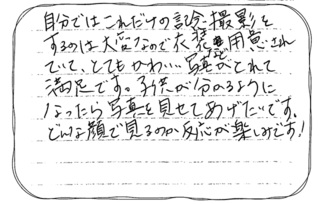 自分ではこれだけの設・撮影を
するのは大変なので衣装用意され
ていて、とてもかわ…写真がとれて
満足です。子供が分かるように
なったら写真を見せてあげたいです。
どんな顔で見るのか反応が楽しみです!